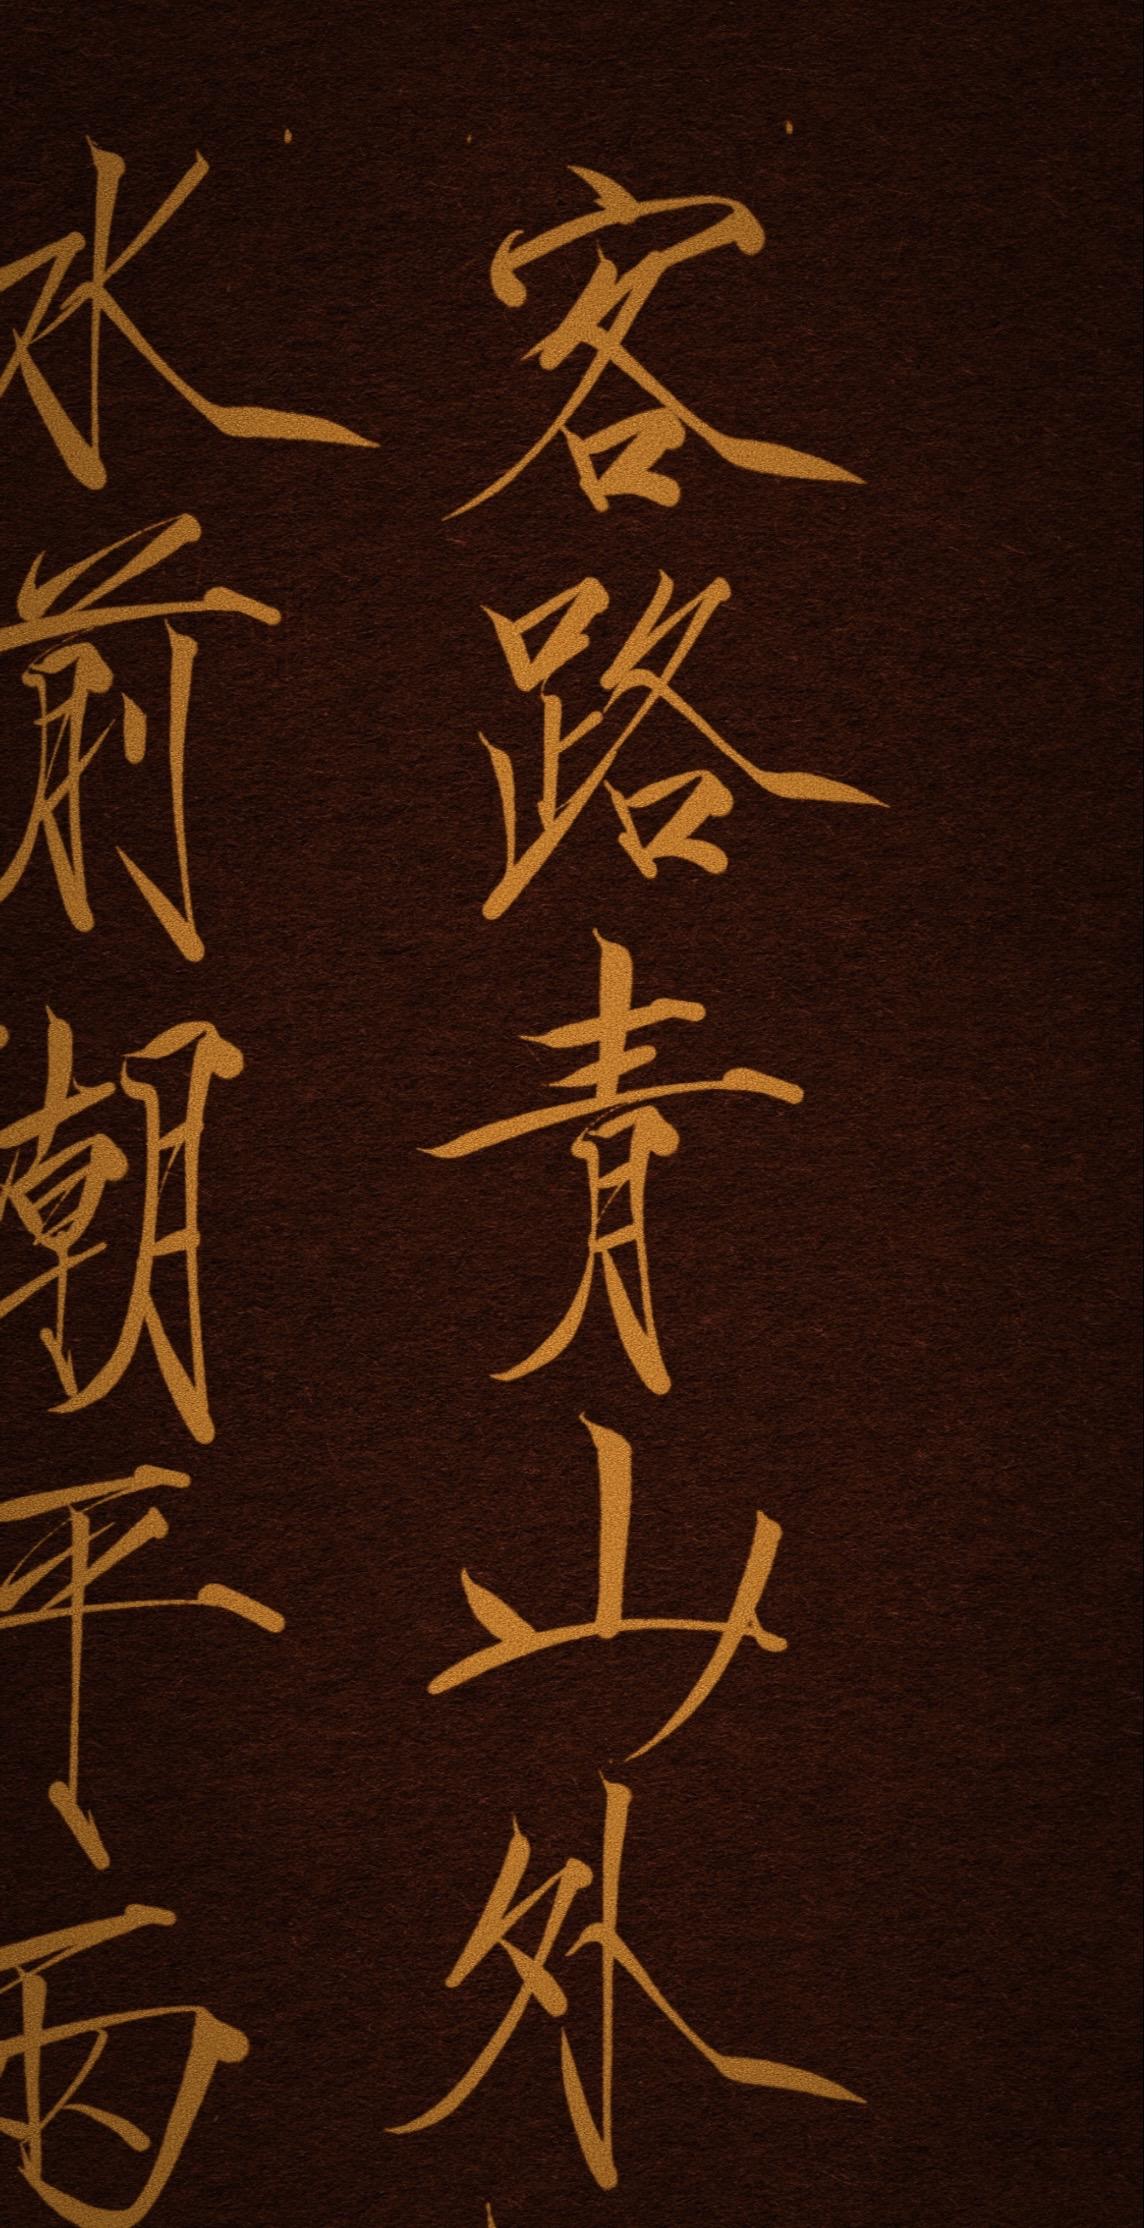 客路青山外
水前潮平兩